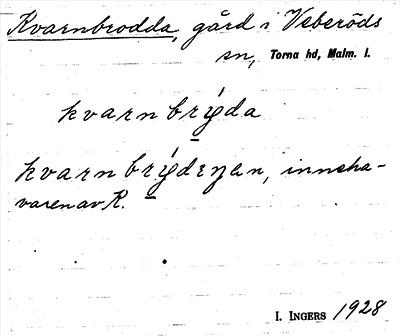 Kvarnbrodda, gård i Veberöds
sn, Torna hd, Malm. l.
kvarnbrýda
kvarnbrýdeŋan, inneha-
varen av K.
I. INGERS 1928